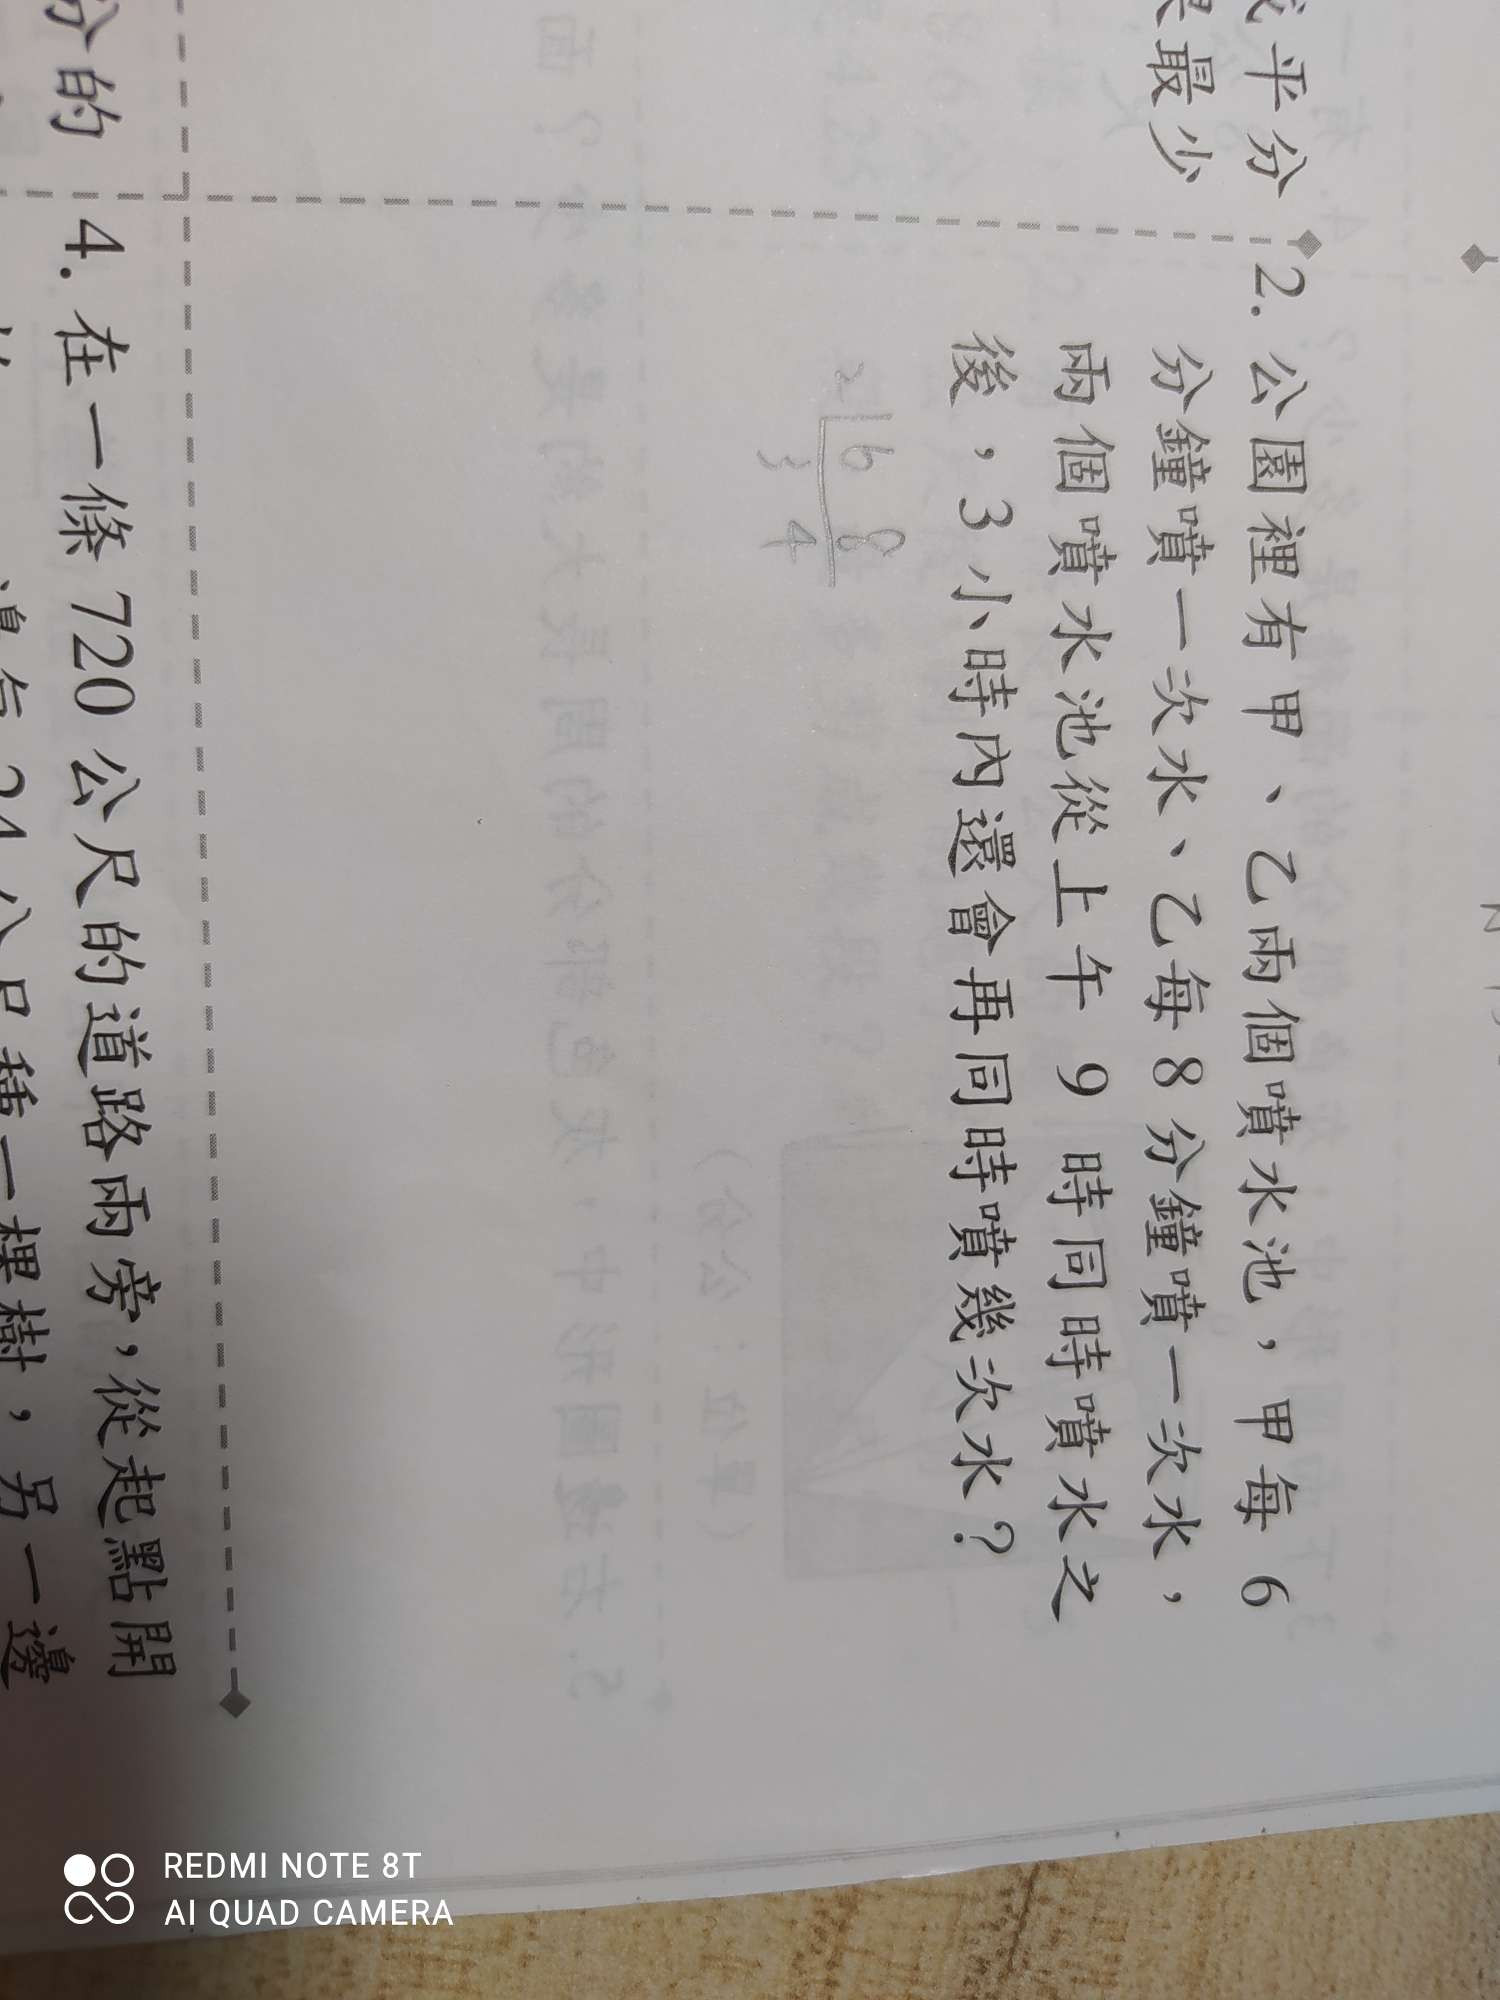 成平分
最少
2. 公園裡有甲、乙兩個噴水池，甲每 6
分鐘噴一次水、乙每 8 分鐘噴一次水，
兩個噴水池從上午 9 時同時噴水之
後，3 小時內還會再同時噴幾次水？
2 6 8
3 4
分的
4. 在一條 720 公尺的道路兩旁，從起點開
每 24 公尺種一棵樹，另一邊
REDMI NOTE 8T
AI QUAD CAMERA